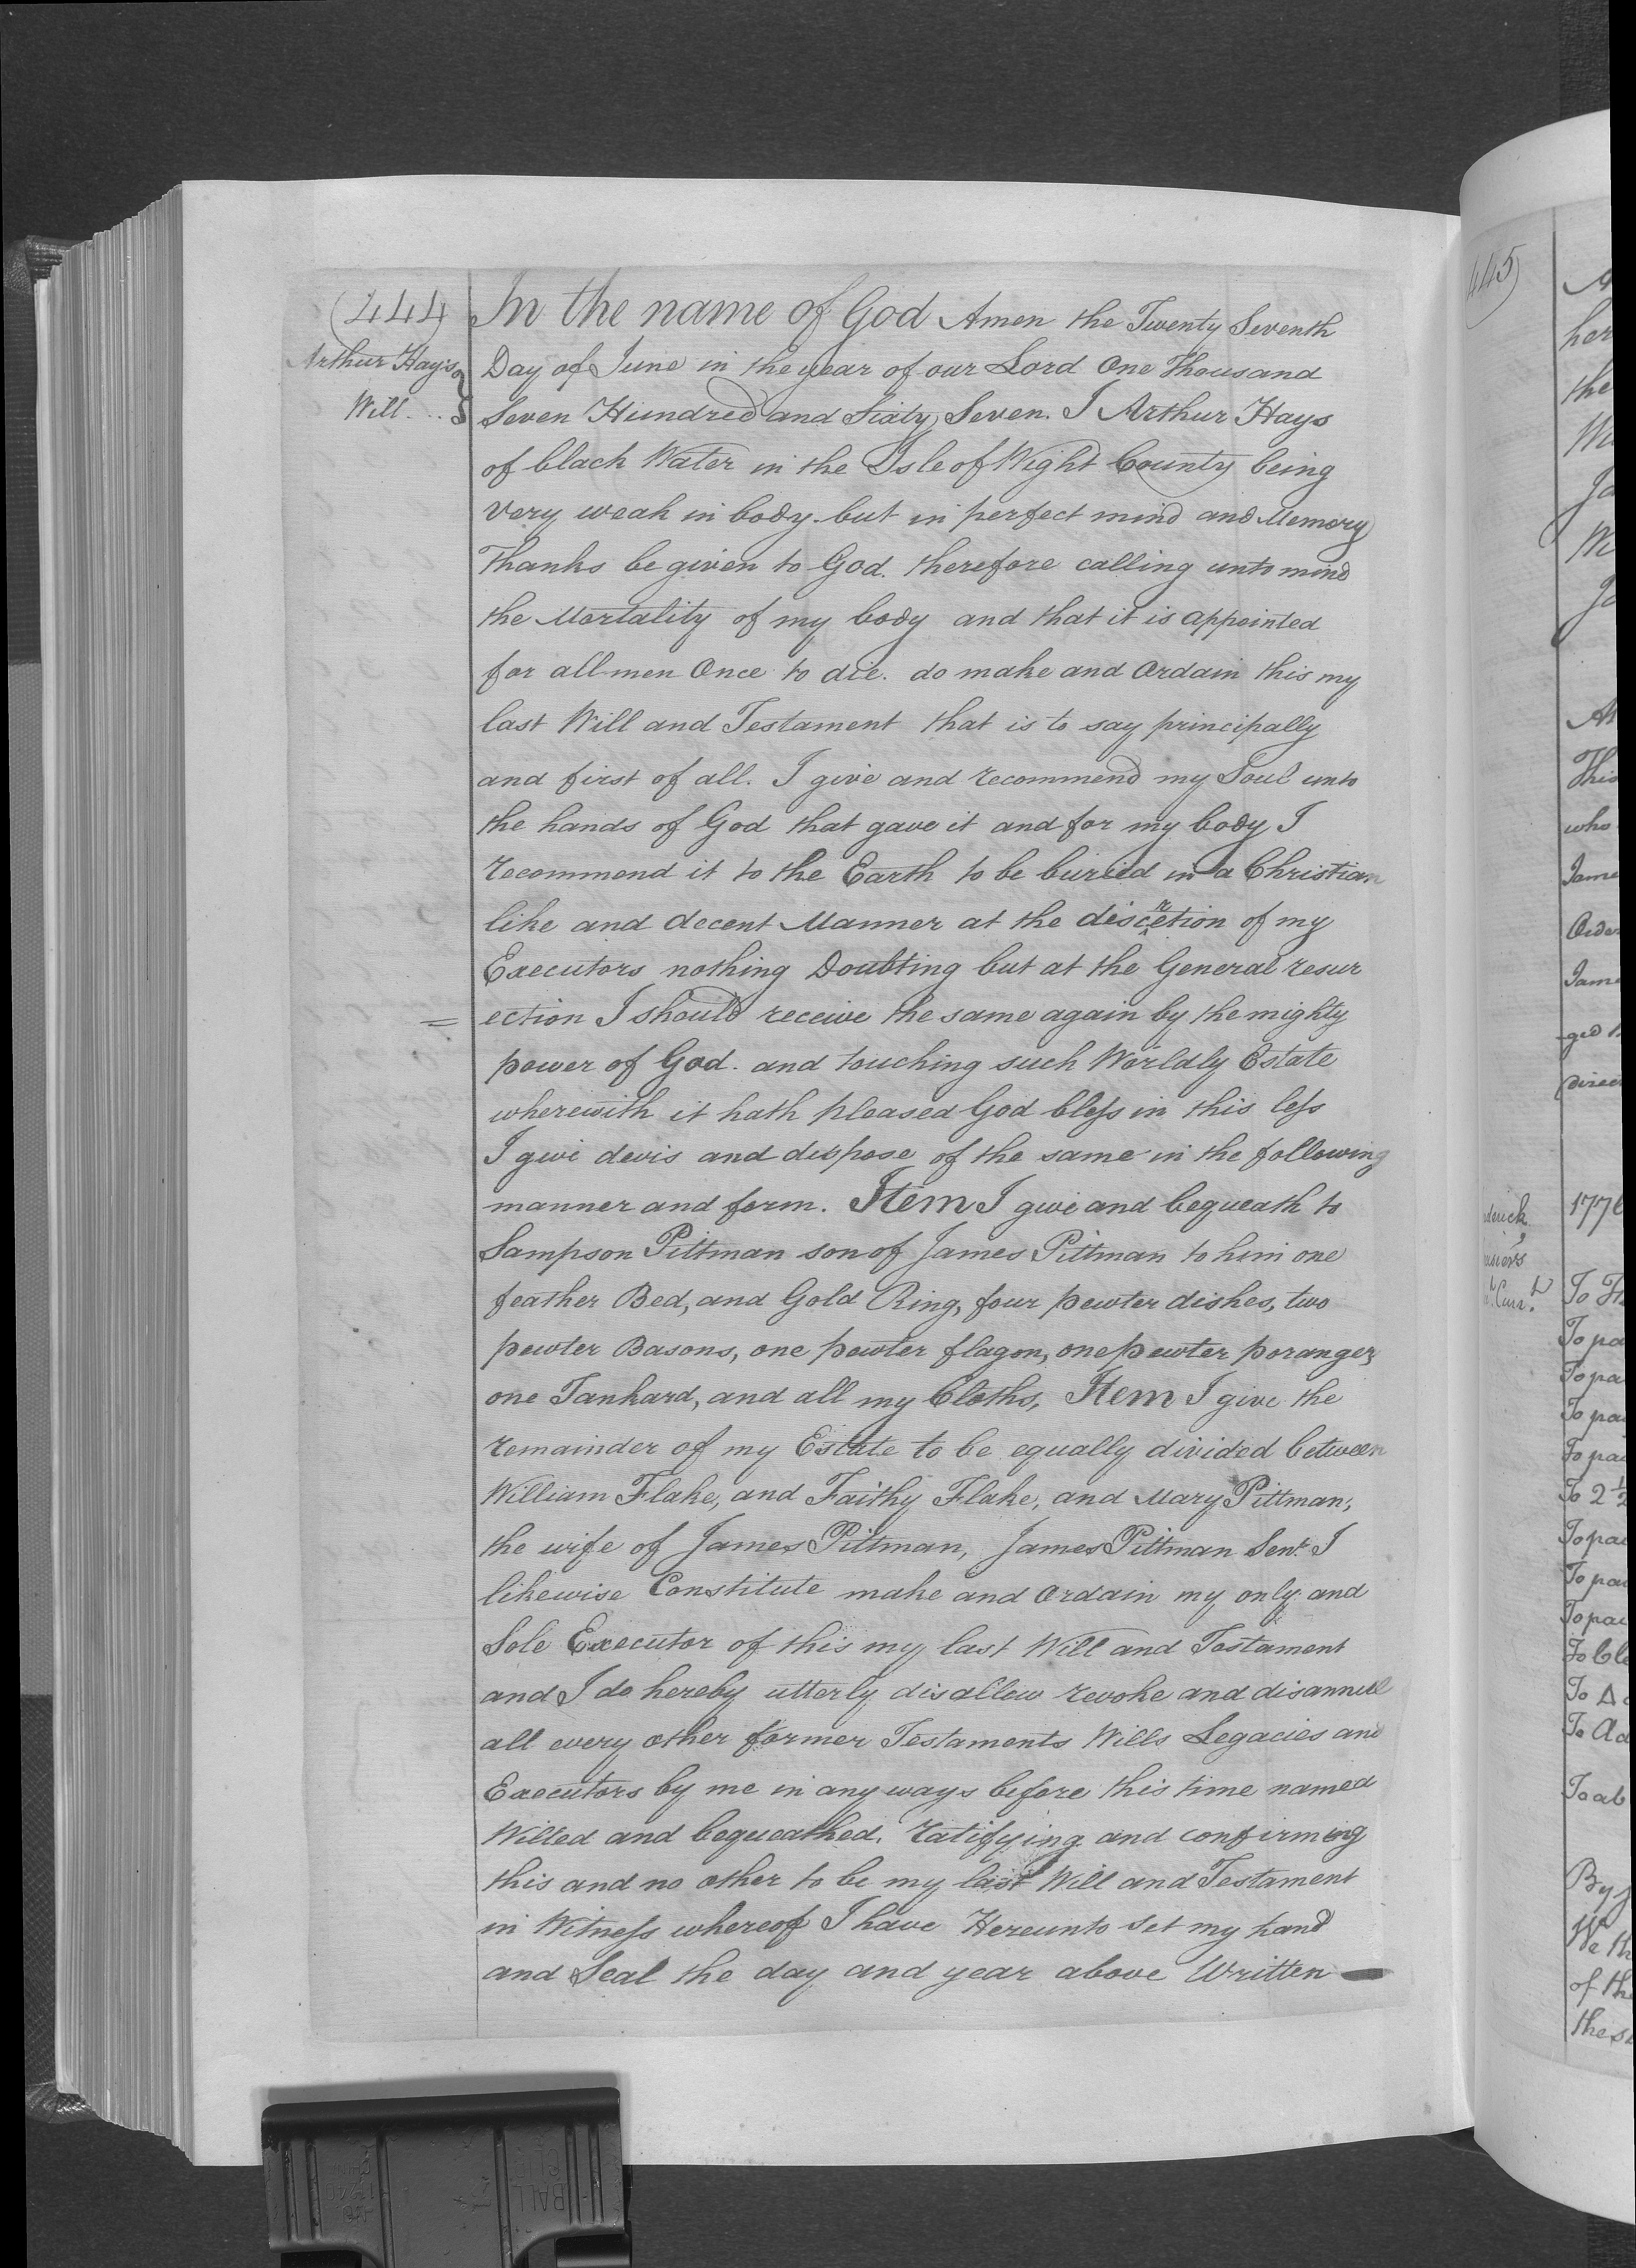 (444)
Arthur Hays
Will...
In the name of God Amen the Twenty Seventh
Day of June in the year of our Lord One Thousand
Seven Hundred and Sixty Seven. I Arthur Hays
of black Water in the Isle of Wight County being
very weak in body. but in perfect mind and Memory
Thanks be given to God. therefore calling unto mind
the Mortality of my body and that it is appointed
for all men Once to die. do make and Ordain this my
last Will and Testament that is to say principally
and first of all. I give and recommend my Soul unto
the hands of God that gave it and for my body I
recommend it to the Earth to be buried in a Christian
like and decent Manner at the discretion of my
Executors nothing Doubting but at the General resur
= ection I should receive the same again by the mighty
power of God. and touching such Worldly Estate
wherewith it hath pleased God bless in this less
I give devis and dispose of the same in the following
manner and form. Item I give and bequeath to
Sampson Pittman son of James Pittman to him one
feather Bed, and Gold Ring, four pewter dishes, two
pewter Basons, one pewter flagon, one pewter poranger,
one Tankard, and all my Cloths, Item I give the
remainder of my Estate to be equally divided between
William Flake, and Faithy Flake, and Mary Pittman,
the wife of James Pittman, James Pittman Senr. I
likewise Constitute make and Ordain my only and
Sole Executor of this my last Will and Testament
and I do hereby utterly disallow revoke and disannull
all every other former Testaments Wills Legacies and
Executors by me in any ways before this time named
Willed and bequeathed. ratifying and confirming
this and no other to be my last Will and Testament
in Witness whereof I have Hereunto set my hand
and Seal the day and year above Written
445)
her
the
This
who
1776